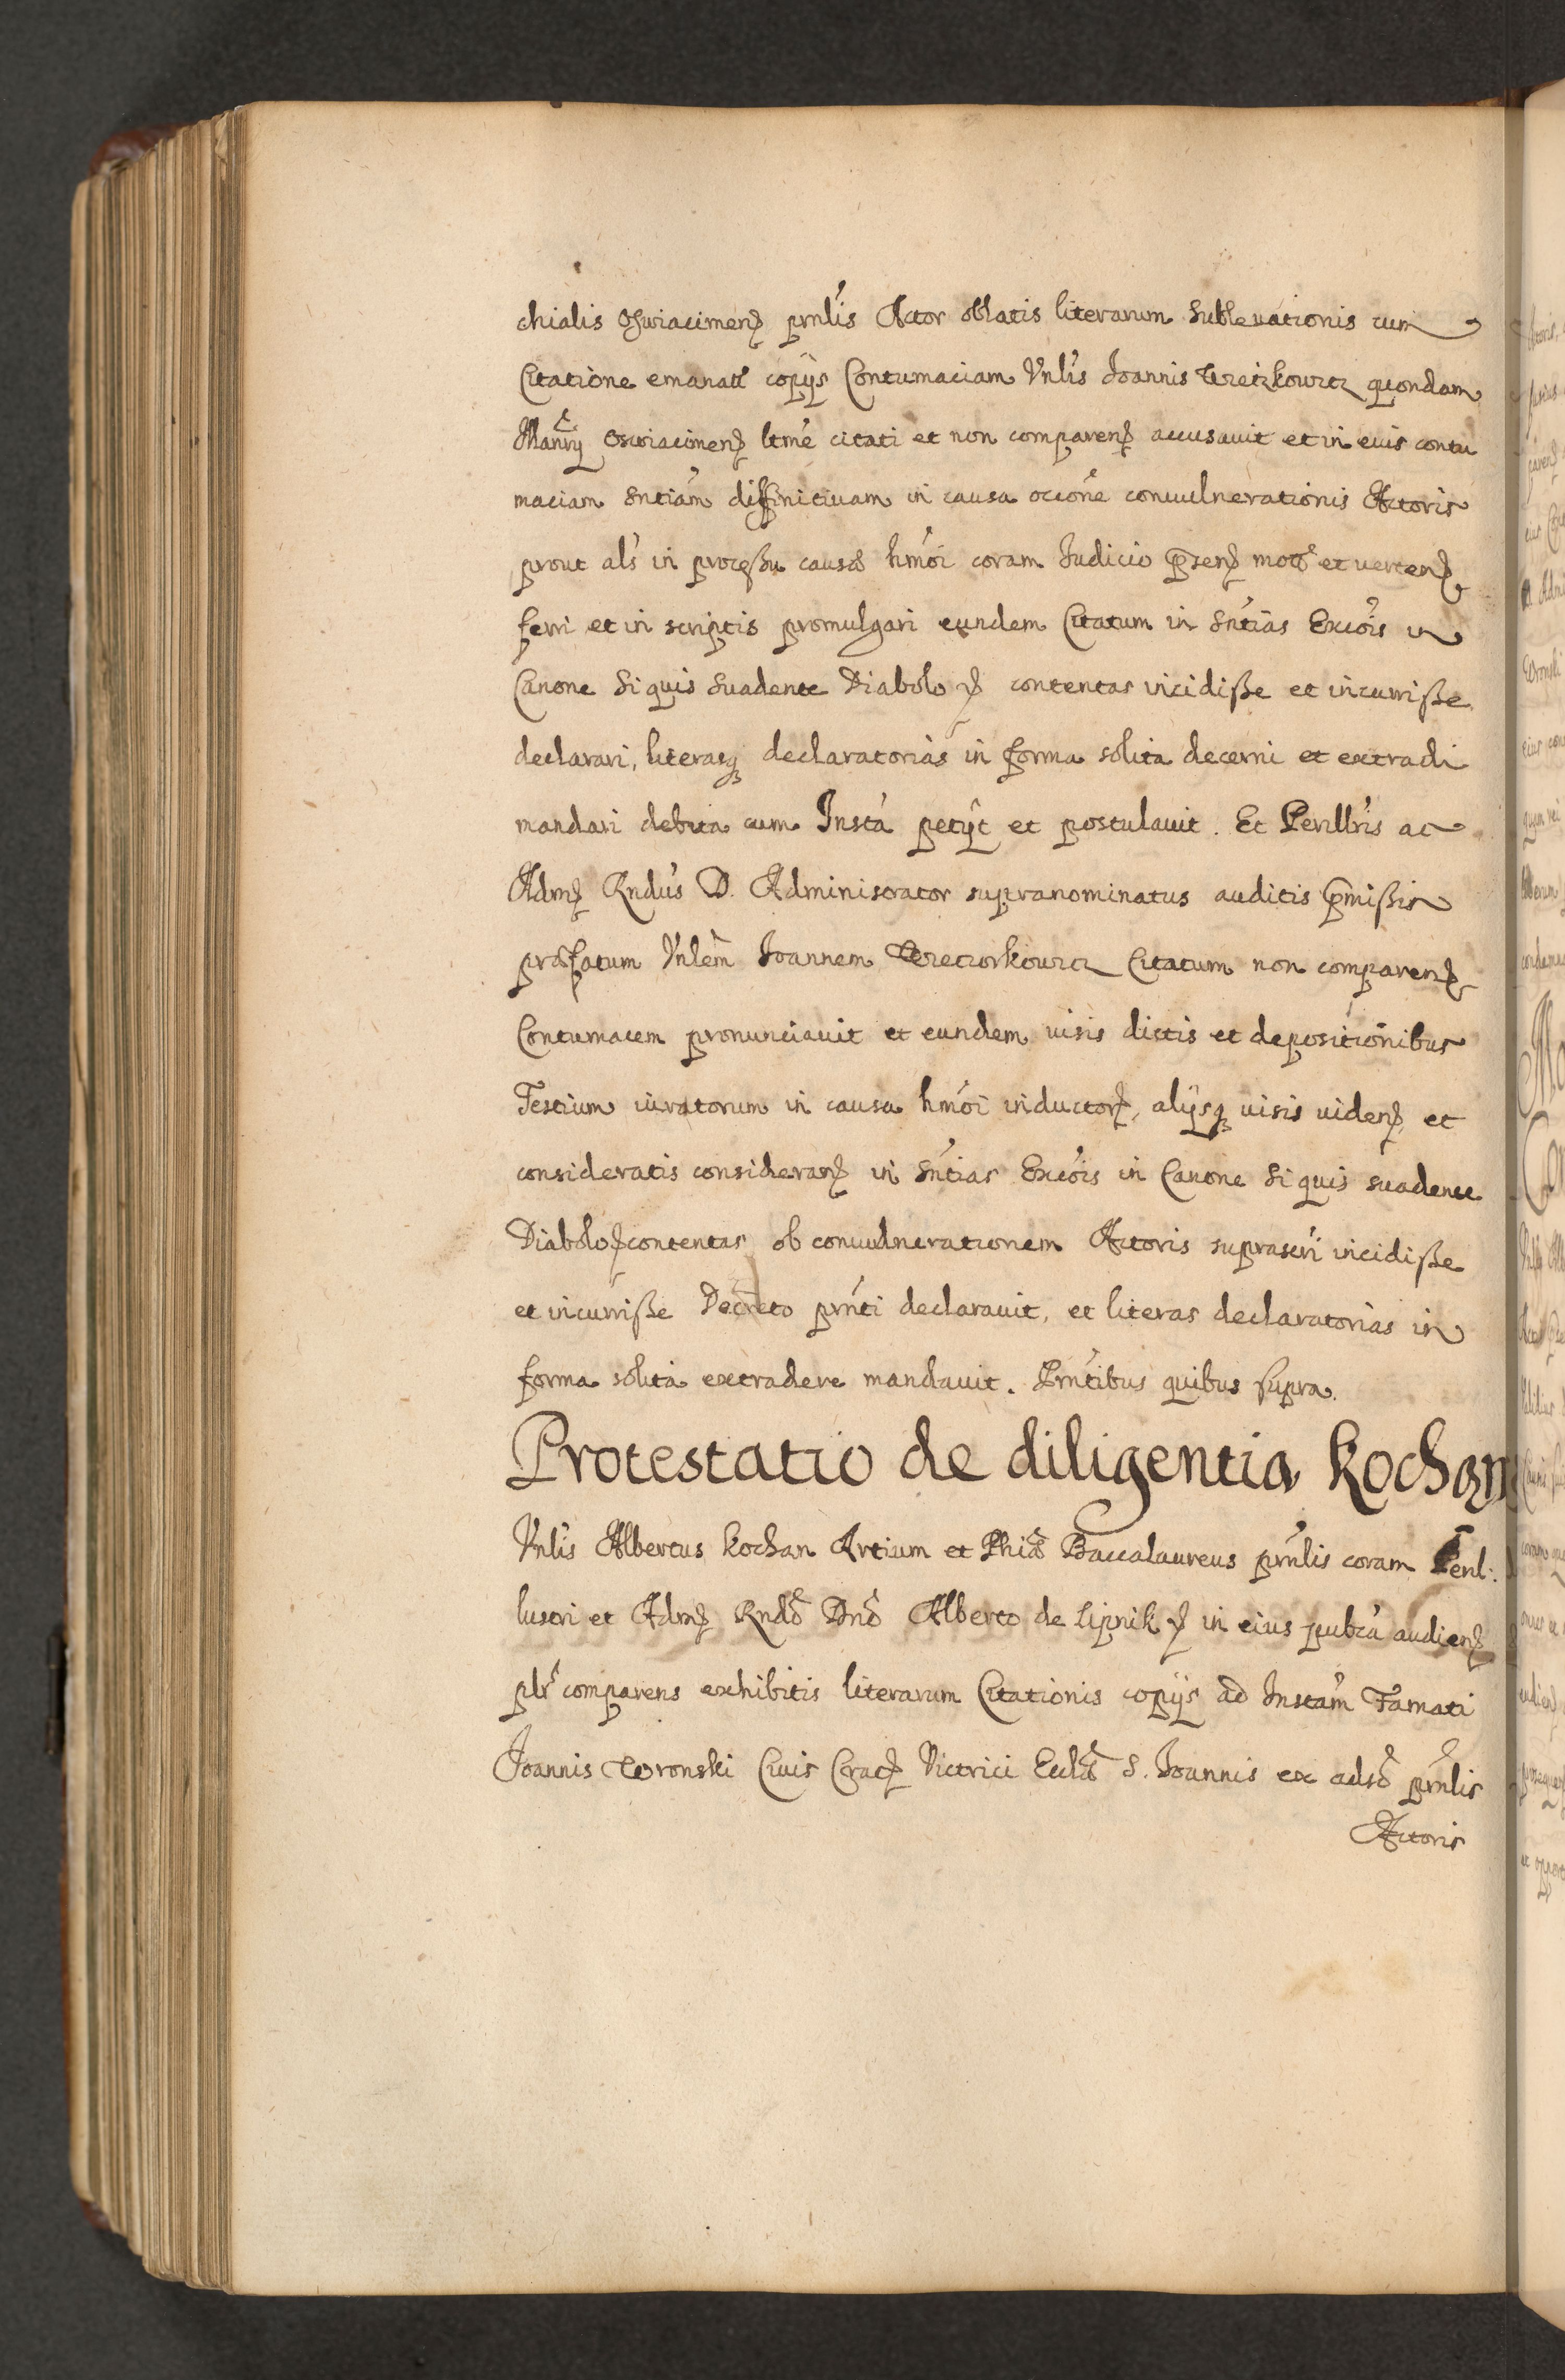 chialis Osuiacimen̄ prnlis Actor oblatis literarum subleuationis cum
Citatione emanat copijs Contumaciam Vnlis Joannis quondam
Oswiacimen̄ ltme citati et non comparen̄ accusauit et in euis contu
maciam sntiam diffinitiuam in causa occone conuulnerationis Actoris
prout als in processu causæ hmoi coram Judicio præsen̄ motæ et verten̄
ferri et in scriptis promulgari eundem Citatum in sntias Excois in
Canone Si quis Suadente Diabolo contentas incidisse et incurrisse
declarari, literasq declaratorias in forma solita decerni et extradi
mandari debita cum Insta petijt et postulauit. Et Perillris ac
Adm Rndus D. Administrator supranominatus auditis præmissis
præfatum Vnlem Joannem Citatum non comparen̄
Contumacem pronunciauit et eundem uisis dictis et depositionibus
Testium iuratorum in causa hmoi inductor, alijsq uisis uiden̄ et
consideratis consideran̄ in Sntias Excois in Canone Si quis suadente
Diabolo contentas ob conuulnerationem Actoris suprascri incidisse
et incurrisse Decreto prnti declarauit, et literas declaratorias in
forma solita extradere mandauit. Prntibus quibus supra.
Protestatio de diligentia Kochan
Vnlis Albertus Kochan Artium et Phiæ Baccalaureus prnlis coram Peril:
lustri et Adm Rndo Dno Alberto de Lipnik in eius pubca audien̄
plr comparens exhibitis literarum Citationis copijs ad Instam Famati
Joannis Woronski Ciuis Crac Victrici Eccliæ S. Joannis ex adso prnlis
Actoris